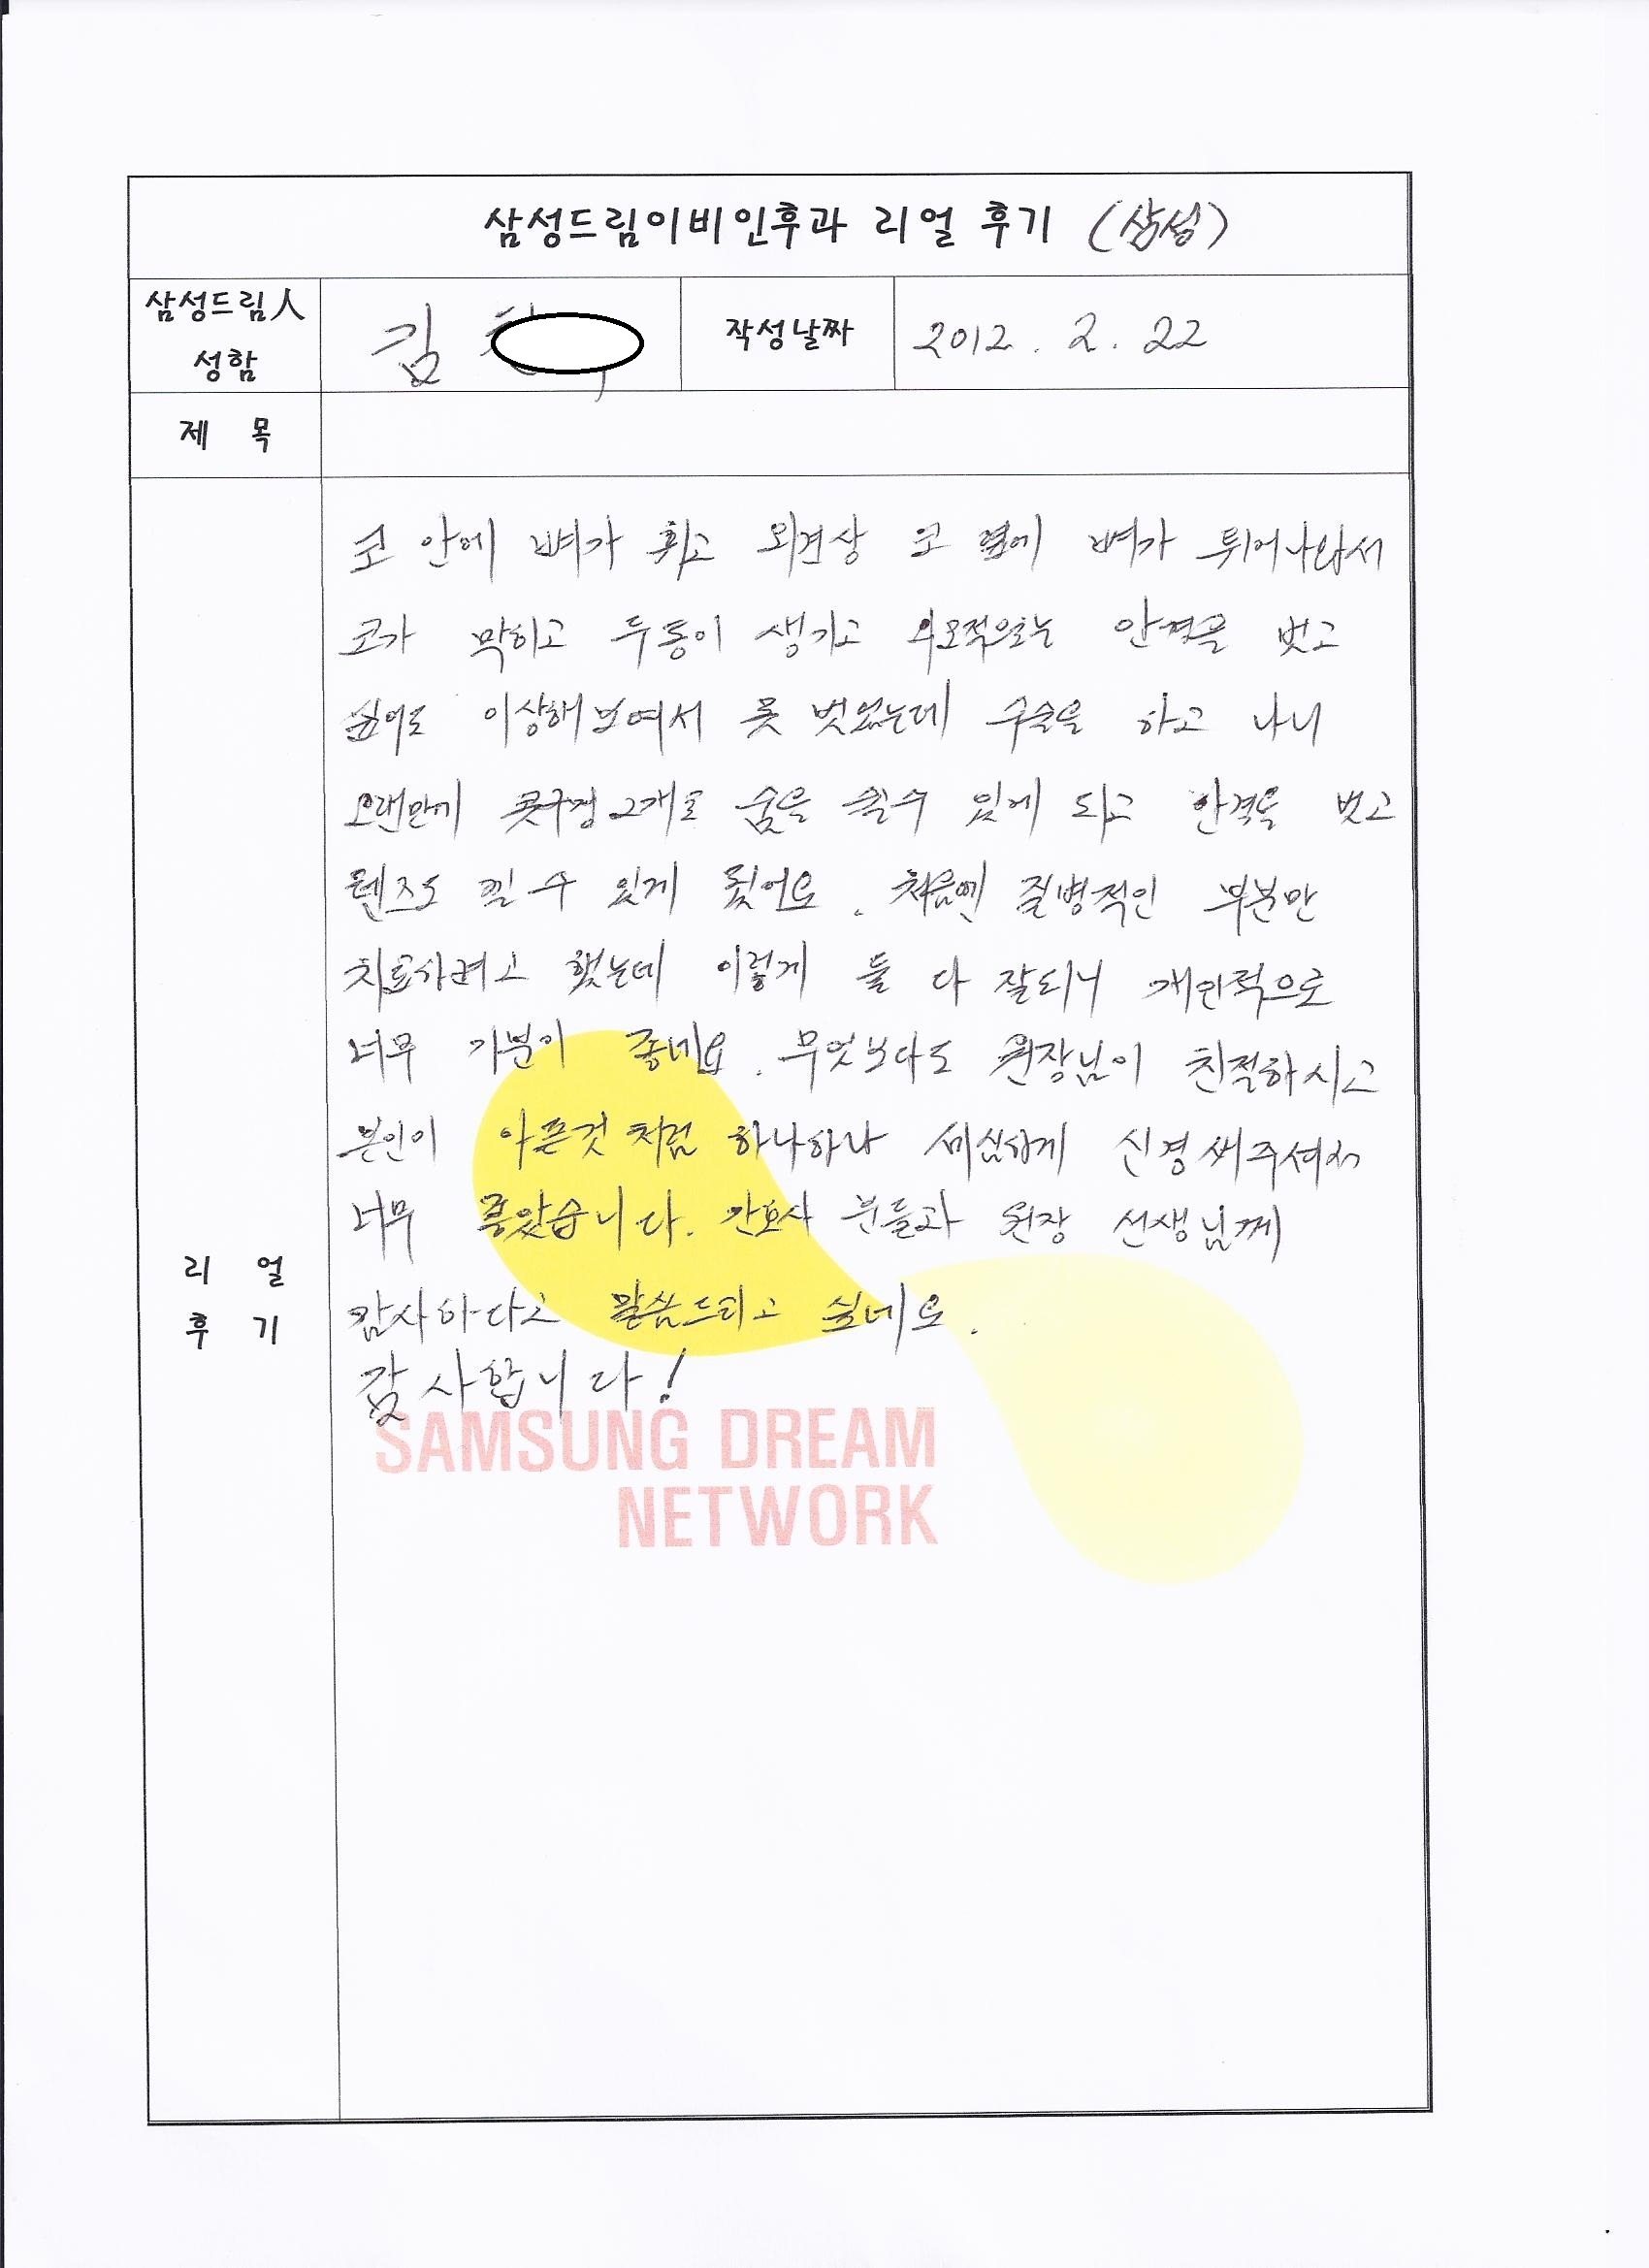 삼성드림이비인후과 리얼 후기 (삼성)
삼성드림人
성함
김
작성날짜
2012. 2. 22
제 목
코 안에 뼈가 휘고 외견상 코 옆에 뼈가 튀어나와서
코가 막히고 두통이 생기고 외모적으로는 안경을 벗고
싶어도 이상해보여서 못 벗었는데 수술을 하고 나니
오랜만에 콧구멍 2개로 숨을 쉴수 있게 되고 안경을 벗고
렌즈도 낄 수 있게 됬어요. 처음엔 질병적인 부분만
치료하려고 했는데 이렇게 둘 다 잘되니 개인적으로
너무 기분이 좋네요. 무엇보다도 원장님이 친절하시고
본인이 아픈것 처럼 하나하나 세심하게 신경써주셔서
너무 좋았습니다. 간호사 분들과 원장 선생님께
감사하다고 말씀드리고 싶네요.
감사합니다!
리 얼
후 기
SAMSUNG DREAM
NETWORK